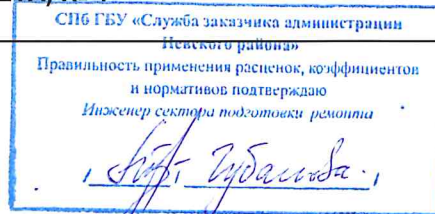 СПб ГБУ «Служба заказчика администрации
Невского района»
Правильность применения расценок, коэффициентов
и нормативов подтверждаю
Инженер сектора подготовки ремонта